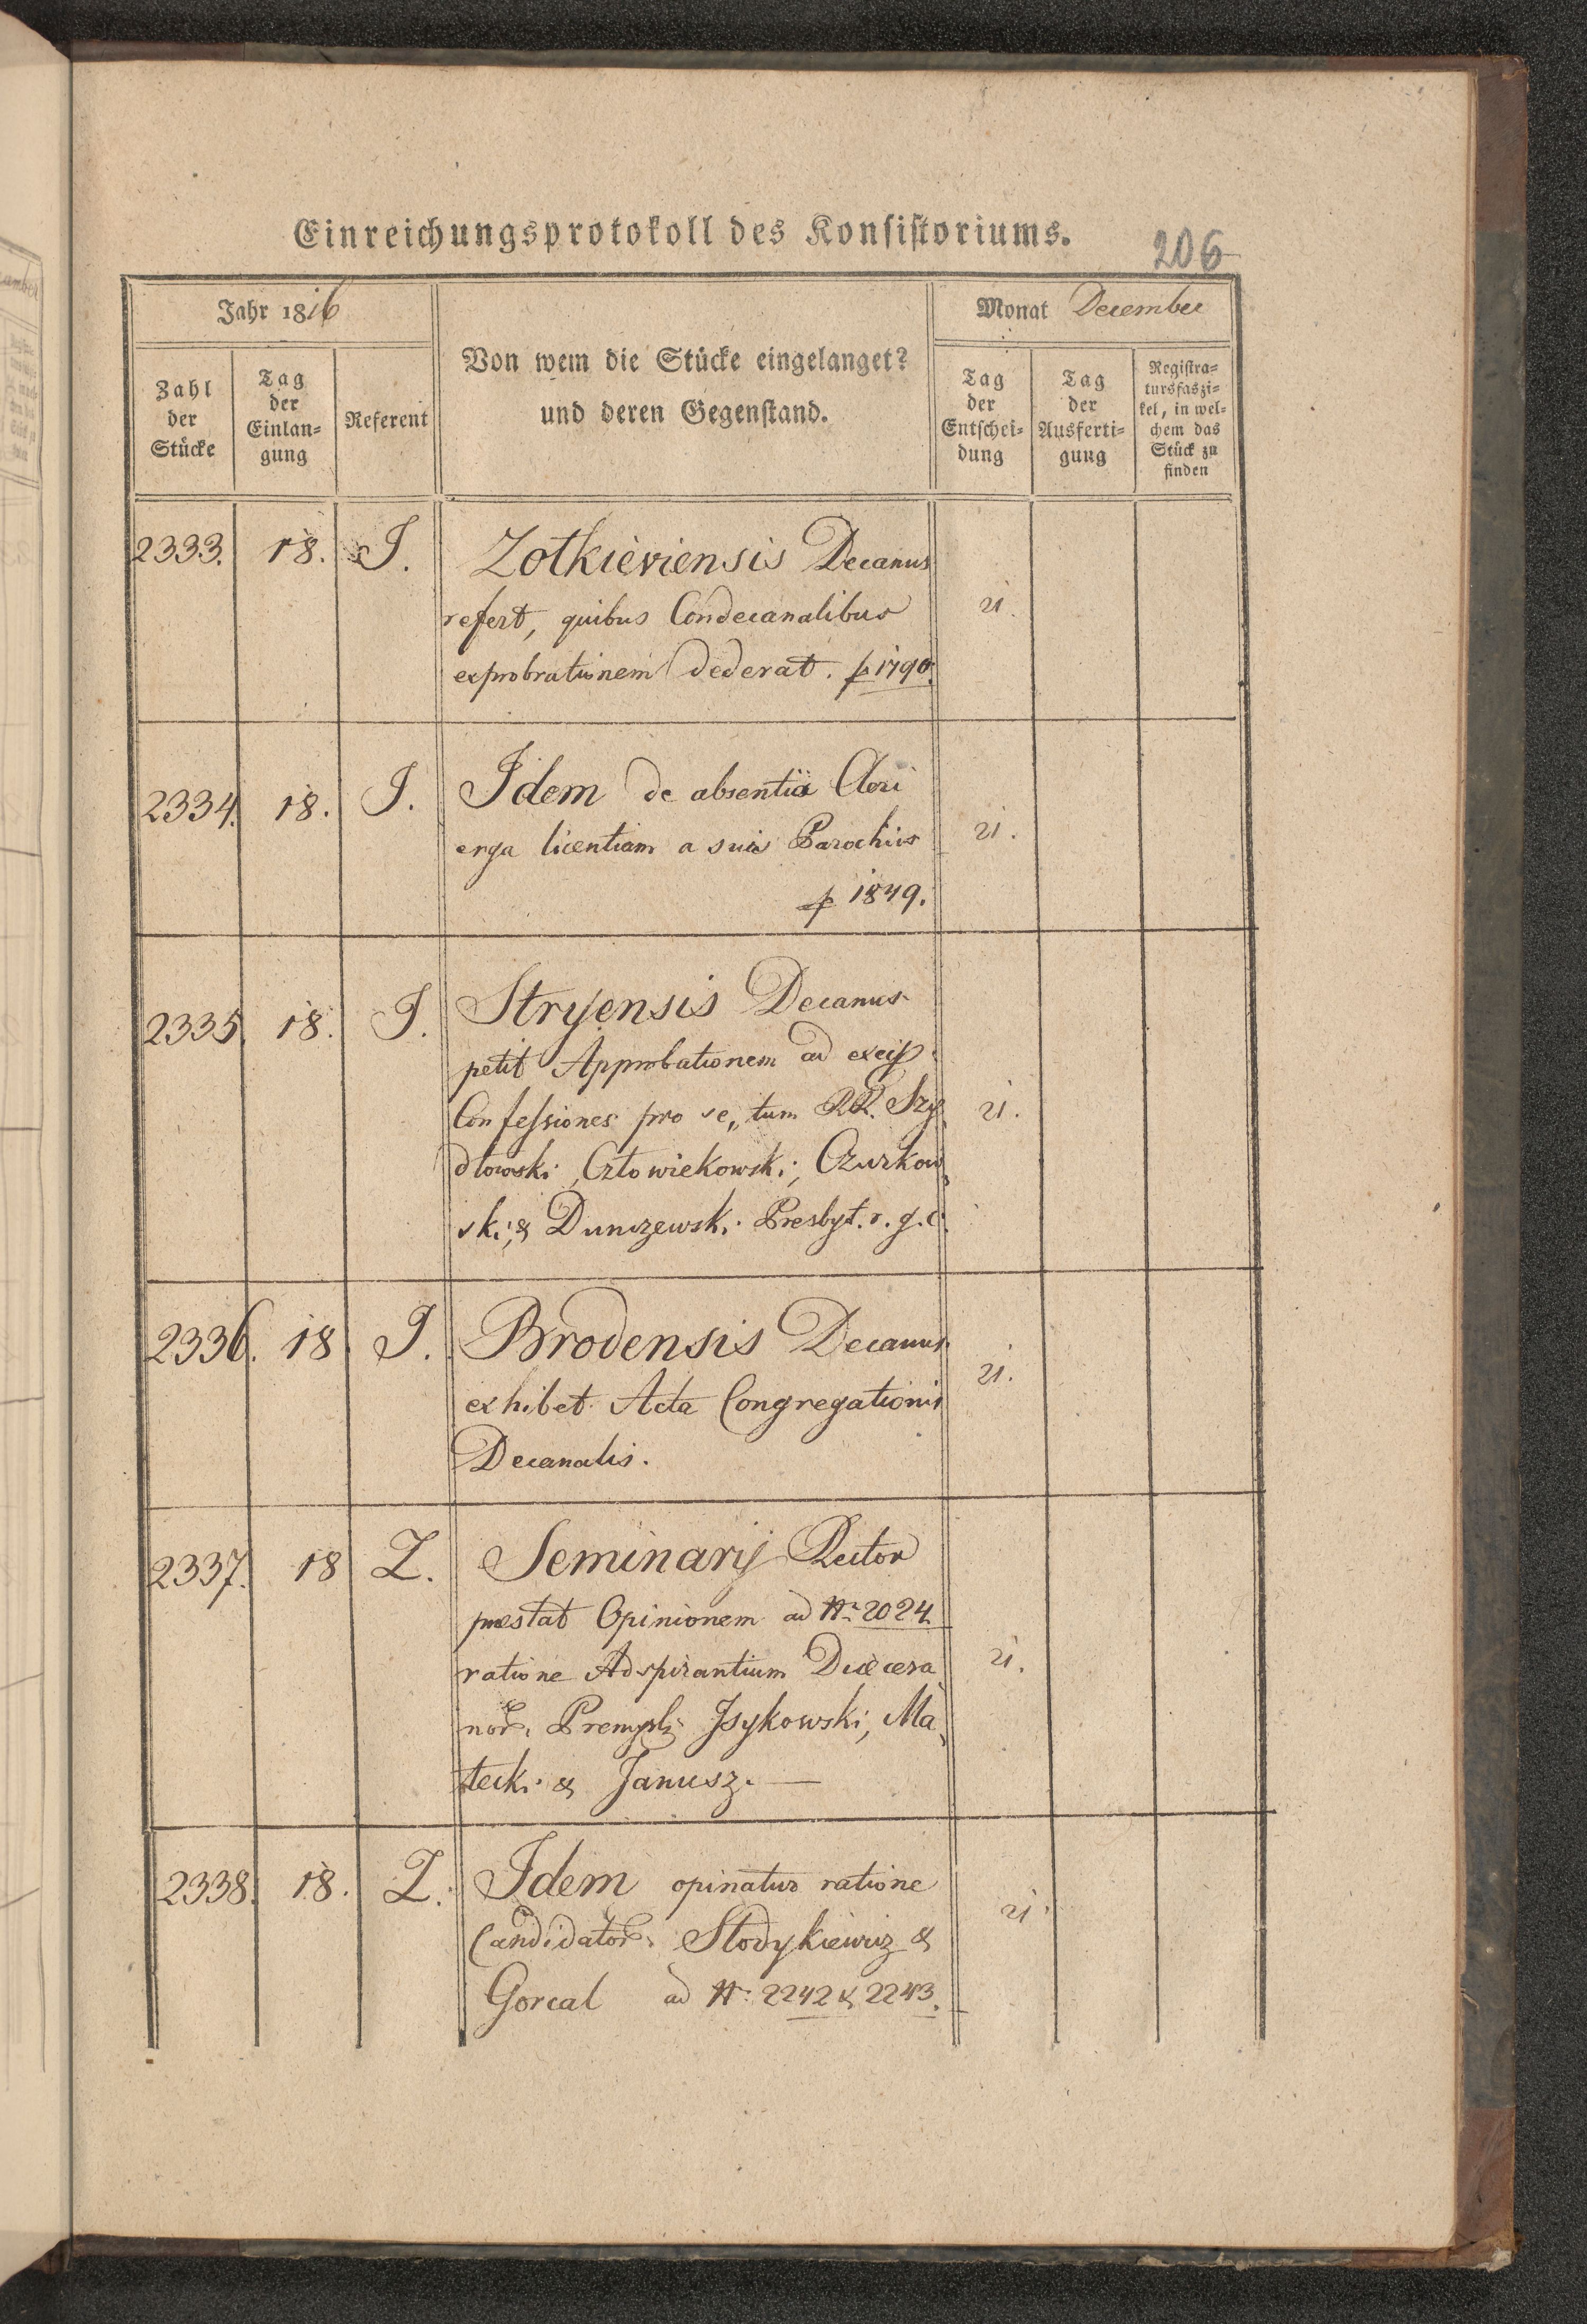 Einreichungsprotokoll des Konsistoriums.
206
Jahr 1816
Von wem die Stücke eingelanget?
und deren Gegenstand.
Monat December
Zahl
der
Stücke
Tag
der
Einlan-
gung
Referent
Tag
der
Entschei-
dung
Tag
der
Ausferti-
gung
Registra-
tursfaszi-
kel, in wel-
chem das
Stück zu
finden
2333. 18. J. Zotkieviensis Decanus
refert, quibus Condecanalibus 21.
exprobrationem dederat. p 1790.
2334. 18. J. Idem de absentia Cleri
erga licentiam a suis Parochiis 21.
p 1849.
2335. 18. J. Stryensis Decanus
petit Approbationem ad excip.
Confessiones pro se, tum RR. Szy 21.
dlowski, Człowiekowski, Czurkow
ski, & Dunczewski Presbyt. r. g. c.
2336. 18. J. Brodensis Decanus
exhibet Acta Congregationis 21.
Decanalis.
2337. 18 Z. Seminarij Rector
præstat Opinionem ad Nr. 2024.
ratione Adspirantium Diœcesa 21.
nor. Premysl. Jsykowski, Ma
tecki & Janusz. —
2338. 18. Z. Idem opinatur ratione
Candidator. Stodykiewicz & 21.
Gorcal ad Nr. 2242 & 2243.